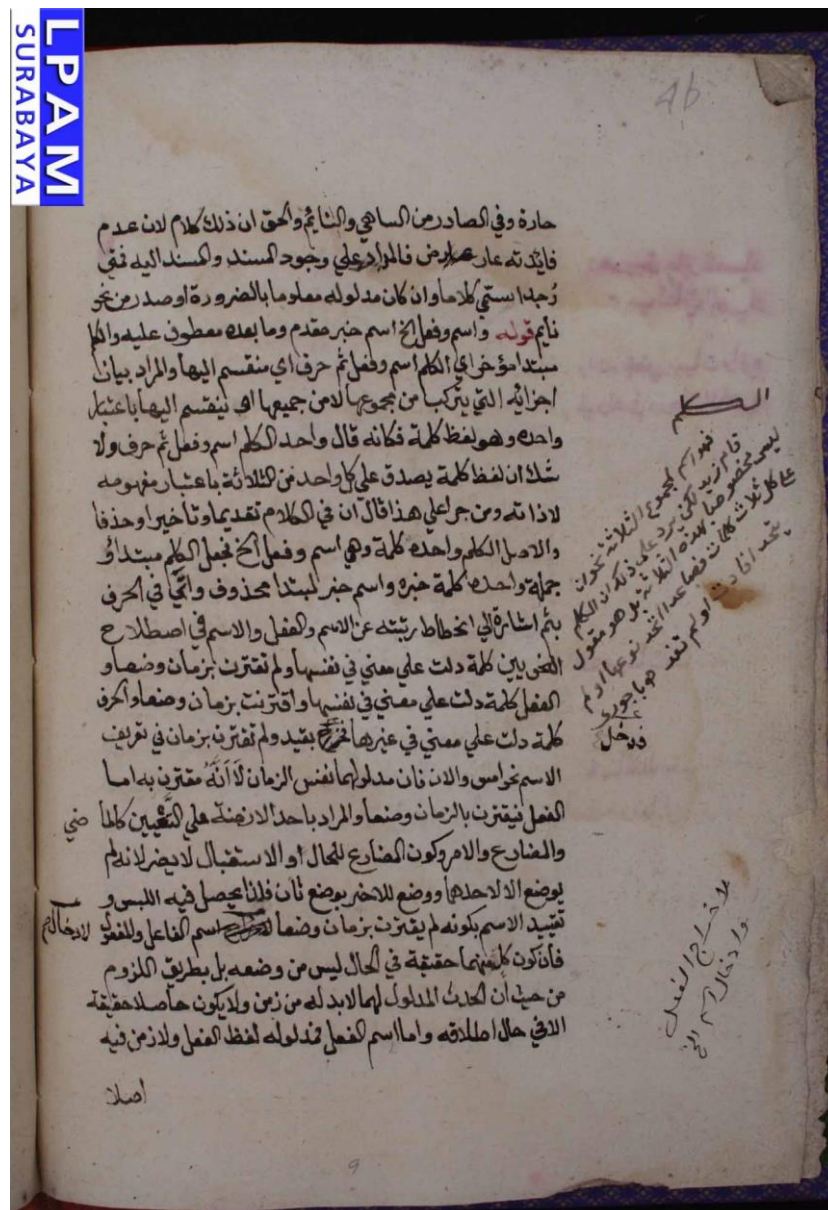 LPAM
SURABAYA
46
حارة وفي الصادر من الساهي والنايم والحق ان ذلك كلام لان عدم
فايدته عارض فالمراد علي وجود المسند والمسند اليه فمتي
وُجدا سمي كلاما وان كان مدلوله معلوما بالضرورة او صدر من نحو
نايم قوله واسم وفعل الخ اسم خبر مقدم وما بعده معطوف عليه والكلم
مبتدا مؤخر اي الكلم اسم وفعل ثم حرف اي منقسم اليها والمراد بيان
اجزائه التي يتركب من مجموعها لا من جميعها اي ينقسم اليها باعتبار
واحده وهو لفظ كلمة فكانه قال واحد الكلم اسم وفعل ثم حرف ولا
شك ان لفظ كلمة يصدق علي كل واحد من الثلاثة باعتبار مفهومه
لا ذاته ومن جرا علي هذا قال ان في الكلام تقديما وتاخيرا وحذفا
والاصل الكلم واحده كلمة وهي اسم وفعل الخ فجعل الكلم مبتدا وُ
جملة واحده كلمة خبره واسم خبر لمبتدا محذوف واتي في الحرف
بثم اشارة الي انحطاط رتبته عن الاسم والفعل والاسم في اصطلاح
النحويين كلمة دلت علي معني في نفسها ولم تقترن بزمان وضعا و
الفعل كلمة دلت علي معني في نفسها واقترنت بزمان وضعا والحرف
كلمة دلت علي معني في غيرها فخرج بقيد ولم تقترن بزمان في تعريف
الاسم نحو امس والان فان مدلولهما نفس الزمان لا انه مقترن به اما
الفعل فيقترن بالزمان وضعا والمراد باحد الازمنة علي التعيين كالما ضي
والمضارع والامر وكون المضارع للحال او الاستقبال لا يضر لانه لم
يوضع الا لاحدهما ووضع للاخر بوضع ثان فلذا يحصل فيه اللبس و
تقييد الاسم بكونه لم يقترن بزمان وضعا لادخال اسم الفاعل والمفعول
فان كون كل منهما حقيقة في الحال ليس من وضعه بل بطريق اللزوم
من حيث ان الحدث المدلول لهما لا بد له من زمن ولا يكون حاصلا حقيقة
الا في حال اطلاقه واما اسم الفعل فمدلوله لفظ الفعل ولا زمن فيه
اصلا
فهو اسم لمجموع الثلاثة نحو ان
قام زيد لكن يرد علي ذلك ان الكلم
ليس مخصوصا بهذه الثلاثة بل هو مقول
علي كل ثلاث كلمات فصاعدا اتحد نوعها او لم
يتحد افادت او لم تفد باجوري
فدخل
لاخراج الفعل
وادخال اسم الخ
9